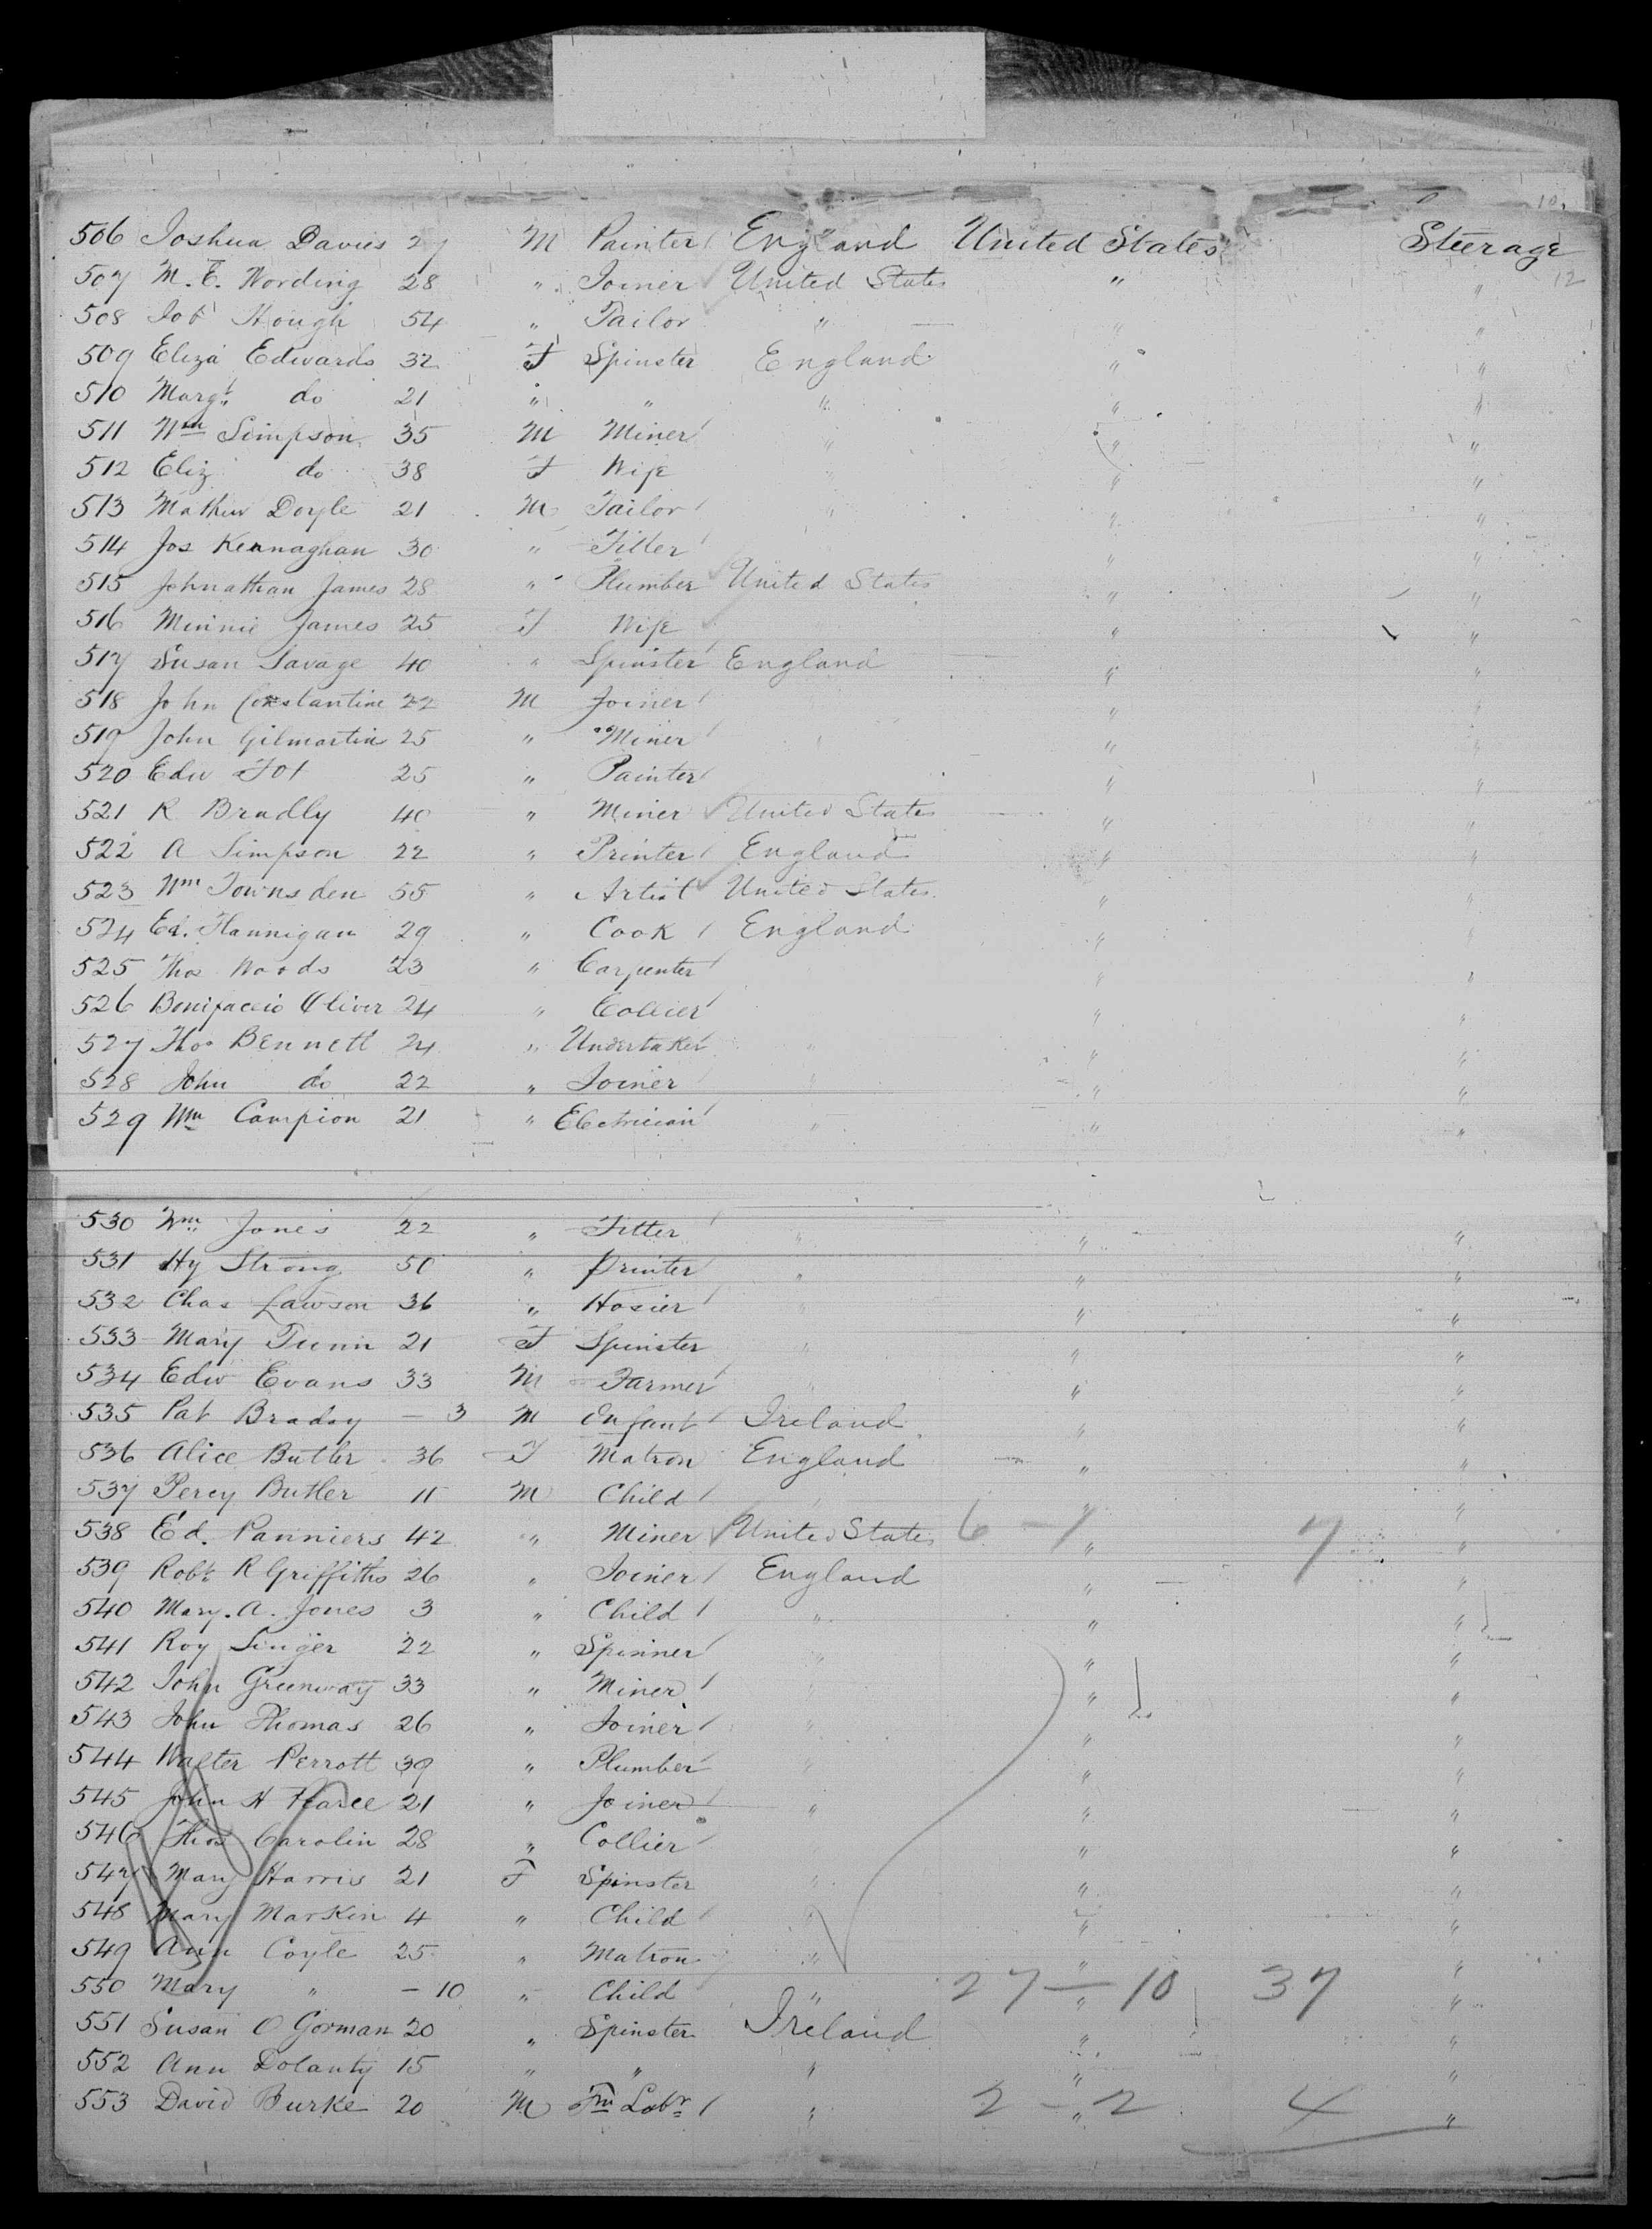 10.
506 Joshua Davies 27 M Painter England United States Steerage
12
507 M. E. Wording 28 " Joiner United States " "
508 Job Hough 54 " Tailor " " "
509 Eliza Edwards 32 F Spinster England " "
510 Margt. do 21 " " " " "
511 Wm Simpson 35 M Miner " " "
512 Eliz do 38 F Wife " " "
513 Mathew Doyle 21 M Tailor " " "
514 Jos Kernaghan 30 " Fitter " "
515 Johnathan James 28 " Plumber United States " "
516 Minnie James 25 F Wife " "
517 Susan Savage 40 " Spinster England " "
518 John Constantine 22 M Joiner " "
519 John Gilmartin 25 " Miner " " "
520 Edw 25 " Painter " "
521 R Bradly 40 " Miner United States " "
522 A Simpson 22 " Printer England " "
523 Wm Townsden 55 " Artist United States " "
524 Ed. Hannigan 29 " Cook England " "
525 Thos Woods 23 " Carpenter " "
526 Bonifaccio Oliver 24 " Collier " "
527 Thos Bennett 24 " Undertaker " " "
528 John do 22 " Joiner " " "
529 Wm Campion 21 " Electrician " " "
530 Wm Jones 22 " Fitter " " "
531 Hy Strong 50 " Printer " " "
532 Chas Lawson 36 " Hosier " " "
533 Mary Tunn 21 F Spinster " " "
534 Edw Evans 33 M Farmer " " "
535 Pat Braday - 3 M Infant Ireland " "
536 Alice Butler 36 F Matron England " "
537 Percy Butler 11 M Child " " "
538 Ed. Panniers 42 " Miner United States 6 - 1 " 7 "
539 Robt R Griffiths 26 " Joiner England " "
540 Mary. A. Jones 3 " Child " " "
541 Roy Singer 22 " Spinner " " "
542 John Greenway 33 " Miner " " "
543 John Thomas 26 " Joiner " " "
544 Walter Perrott 39 " Plumber " " "
545 John H Pearce 21 " Joiner " " "
546 Thos Carolin 28 " Collier " "
547 Mary Harris 21 F Spinster " " "
548 Mary Markin 4 " Child " " "
549 Ann Coyle 25 " Matron " " "
550 Mary " - 10 " Child " 27 - 10 " 37 "
551 Susan O Gorman 20 " Spinster Ireland " "
552 Ann Dolanty 15 " " " " "
553 David Burke 20 M Fm Labr " 2 - 2 " 4 "